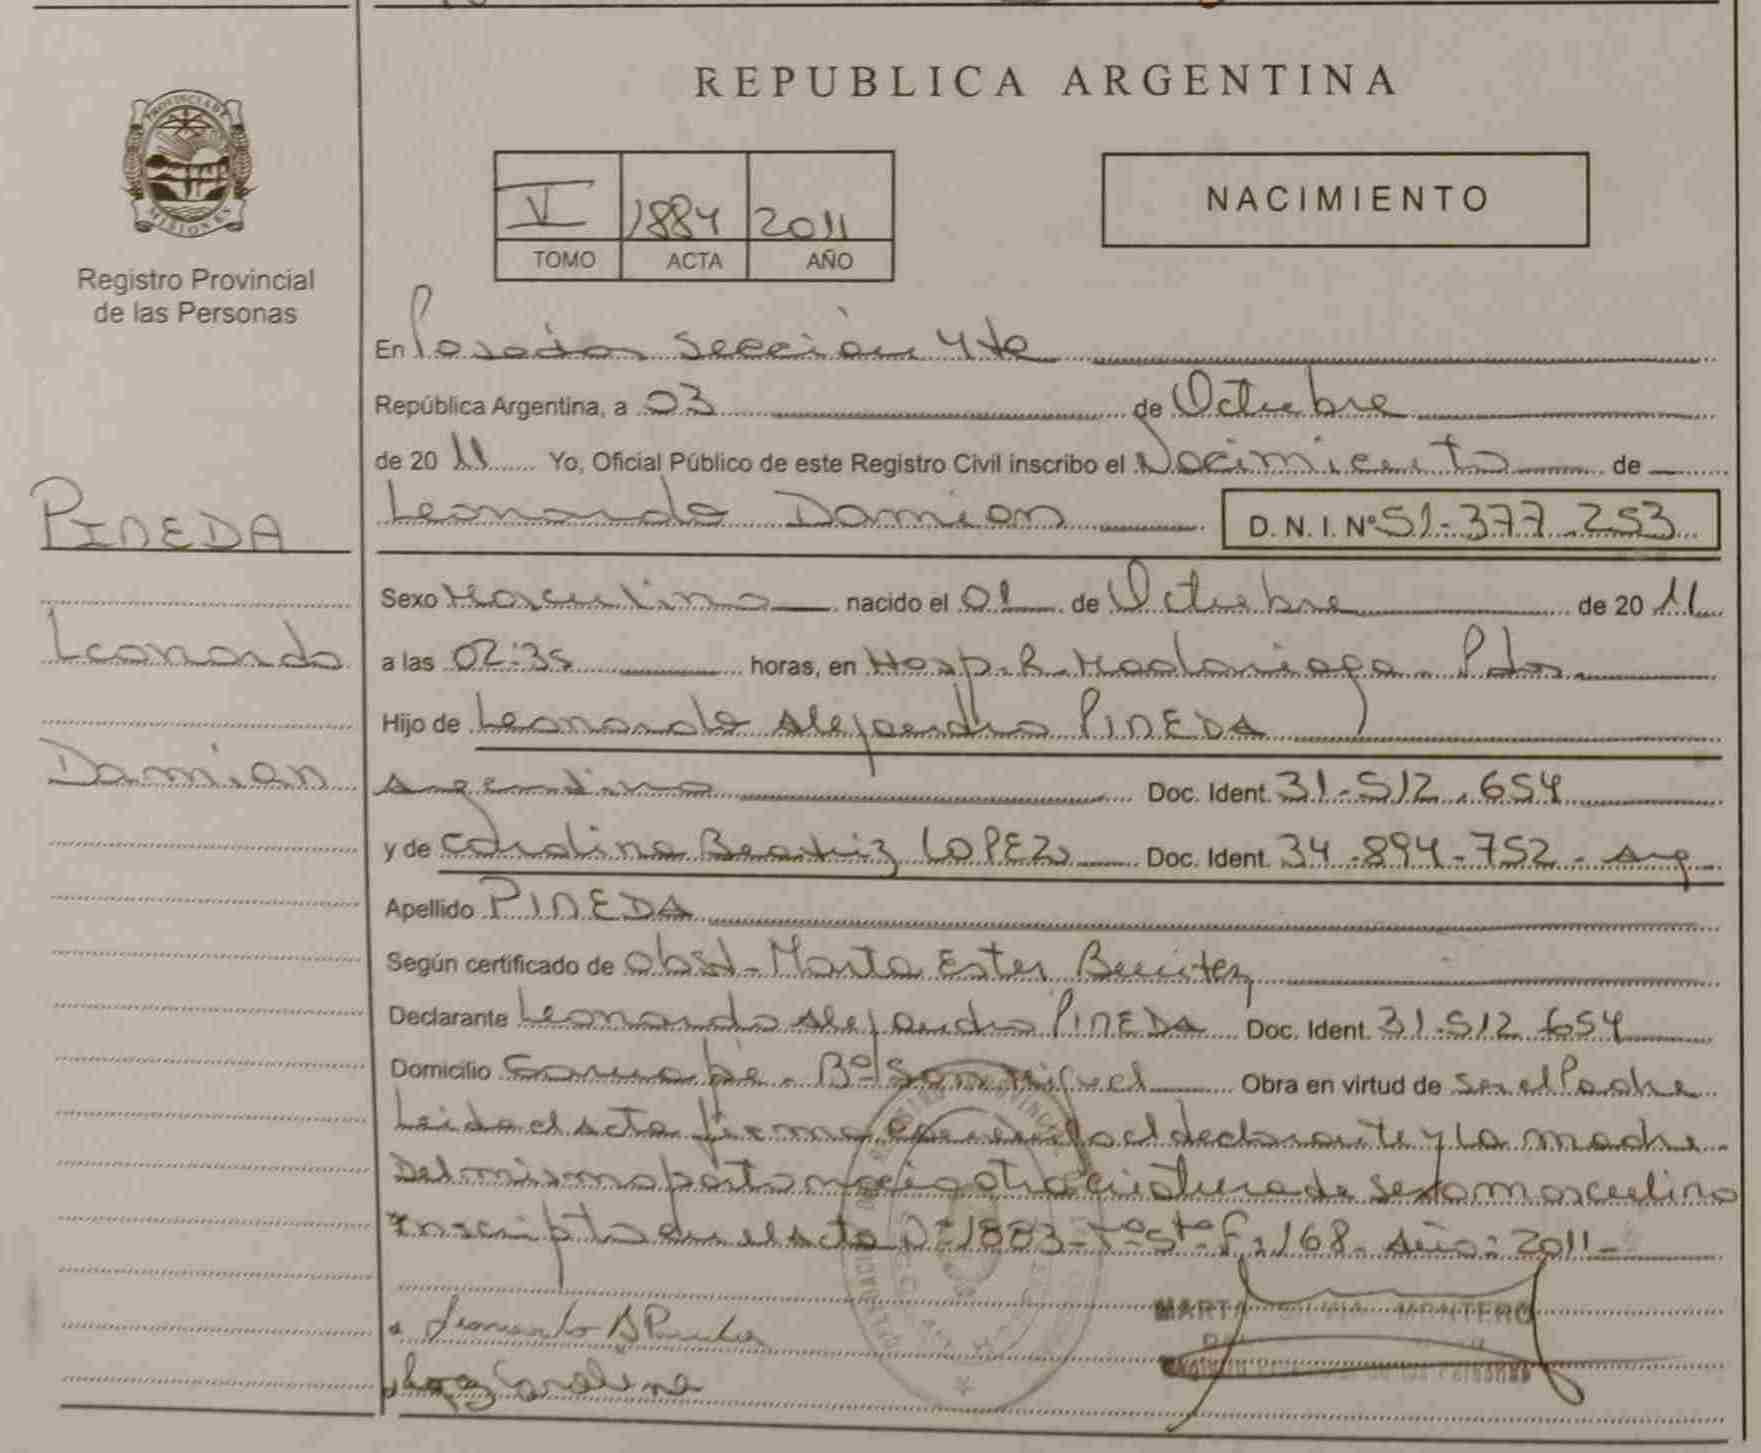 PROVINCIA DE
MISIONES
Registro Provincial
de las Personas
PINEDA
Leonardo
Damian
REPUBLICA ARGENTINA
V 1884 2011
TOMO ACTA AÑO
NACIMIENTO
En Posadas Sección 4ta
República Argentina, a 03 de Octubre
de 2011 Yo, Oficial Público de este Registro Civil inscribo el Nacimiento de
Leonardo Damian D.N.I. Nº 51-377-253
Sexo Masculino nacido el 01 de Octubre de 2011
a las 02:35 horas, en Hosp. R. Madariaga - Pdas
Hijo de Leonardo Alejandro PINEDA
Argentino Doc. Ident. 31-512.654
y de Carolina Beatriz LOPEZ Doc. Ident. 34-894-752 - Arg
Apellido PINEDA
Según certificado de obst- Marta Ester Benitez
Declarante Leonardo Alejandro PINEDA Doc. Ident. 31.512.654
Domicilio Garuapé - Bº San Miguel Obra en virtud de ser el Padre
Leida el acta firma conmigo el declarante y la madre -
Del mismo parto nació otra criatura de sexo masculino
Inscripto en el acta Nº 1883 - Tº 5to Fº 168 - Año: 2011 -
Leonardo A Pineda
Lopez Carolina
MARTA SILVIA MONTERO